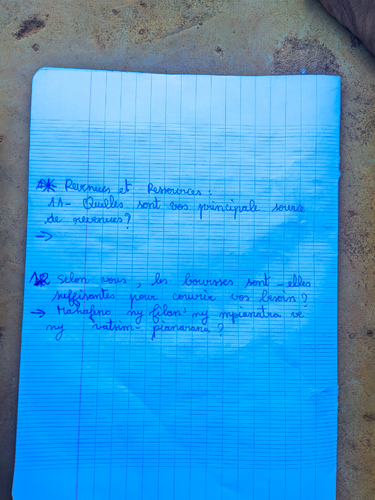 * Revenues et Ressources :
11- Quelles sont vos principale source
de revenues?
→
12 Selon vous, les boursses sont-elles
suffisantes pour couvrir vos besoin ?
→ Mahafino ny filan' ny mpianatra ve
ny vatsim-pianarana ?